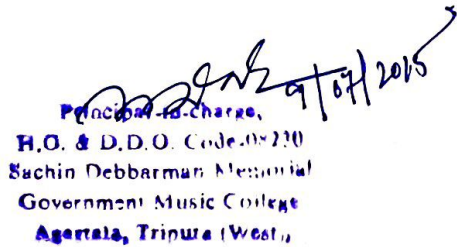 9/07/2015
Principal-in-charge,
H.O. & D.D.O. Code-08230
Sachin Debbarman Memorial
Government Music College
Agartala, Tripura (West).